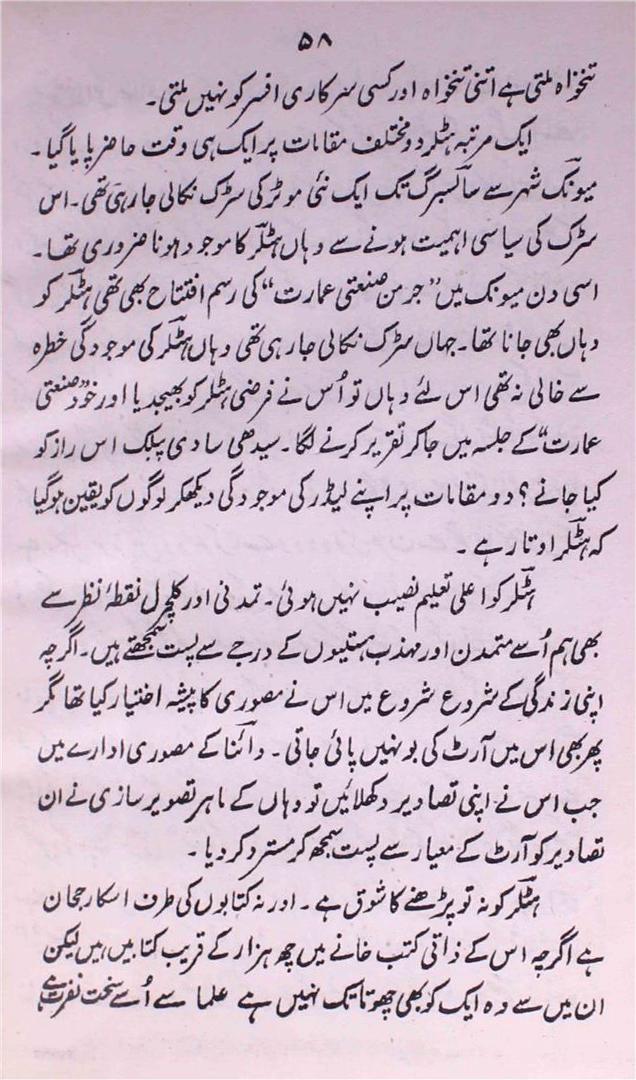 ۵۸
تنخواہ ملتی ہے اتنی تنخواہ اور کسی سرکاری افسر کو نہیں ملتی۔
ایک مرتبہ ہٹلر دو مختلف مقامات پر ایک ہی وقت حاضر پایا گیا۔
میونک شہر سے سالسبرگ تک ایک نئی موٹر کی سڑک نکالی جا رہی تھی۔ اس
سڑک کی سیاسی اہمیت ہونے سے وہاں ہٹلر کا موجود ہونا ضروری تھا۔
اسی دن میونک میں "جرمن صنعتی عمارت" کی رسم افتتاح بھی تھی ہٹلر کو
وہاں بھی جانا تھا۔ جہاں سڑک نکالی جا رہی تھی وہاں ہٹلر کی موجودگی خطرہ
سے خالی نہ تھی اس لئے وہاں تو اُس نے فرضی ہٹلر کو بھیجدیا اور خود "صنعتی
عمارت" کے جلسہ میں جا کر تقریر کرنے لگا۔ سیدھی سادی پبلک اس راز کو
کیا جانے؟ دو مقامات پر اپنے لیڈر کی موجودگی دیکھکر لوگوں کو یقین ہو گیا
کہ ہٹلر اوتار ہے۔
ہٹلر کو اعلی تعلیم نصیب نہیں ہوئی۔ تمدنی اور کلچرل نقطۂ نظر سے
بھی ہم اُسے متمدن اور مہذب ہستیوں کے درجے سے پست سمجھتے ہیں۔ اگرچہ
اپنی زندگی کے شروع شروع میں اس نے مصوری کا پیشہ اختیار کیا تھا مگر
پھر بھی اس میں آرٹ کی بو نہیں پائی جاتی۔ وائنا کے مصوری ادارے میں
جب اس نے اپنی تصاویر دکھلائیں تو وہاں کے ماہر تصویر سازی نے ان
تصاویر کو آرٹ کے معیار سے پست سمجھ کر مسترد کر دیا۔
ہٹلر کو نہ تو پڑھنے کا شوق ہے۔ اور نہ کتابوں کی طرف اسکا رجحان
ہے اگرچہ اس کے ذاتی کتب خانے میں چھ ہزار کے قریب کتابیں ہیں لیکن
ان میں سے وہ ایک کو بھی چھوتا تک نہیں ہے علما سے اُسے سخت نفرت ہے